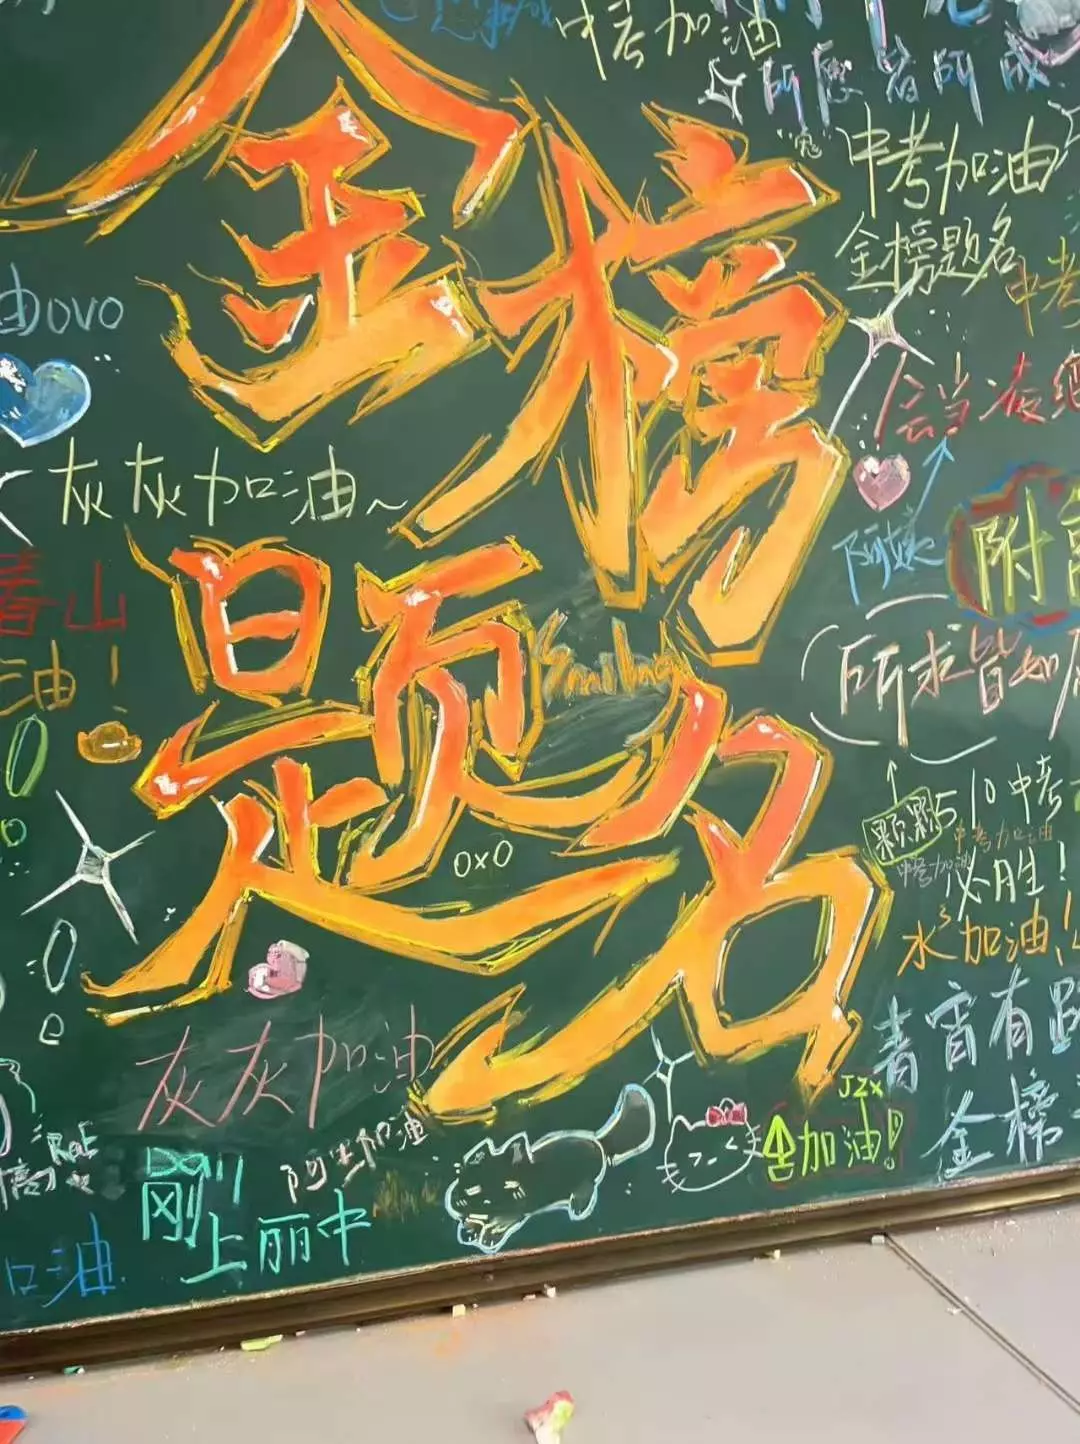 中考加油
所愿皆所成
中考加油
金榜题名
金榜
中考
油ovo
会当凌
灰灰加油~
附
题名
Smiling
春山
油！
所求皆如
颗颗
510中考
中考加油
中考加油
必胜！
0x0
水³加油！
e
青宵有路
灰灰加油
金榜
JZX
加油！
RaE
阿 加油
刚
上丽中
加油